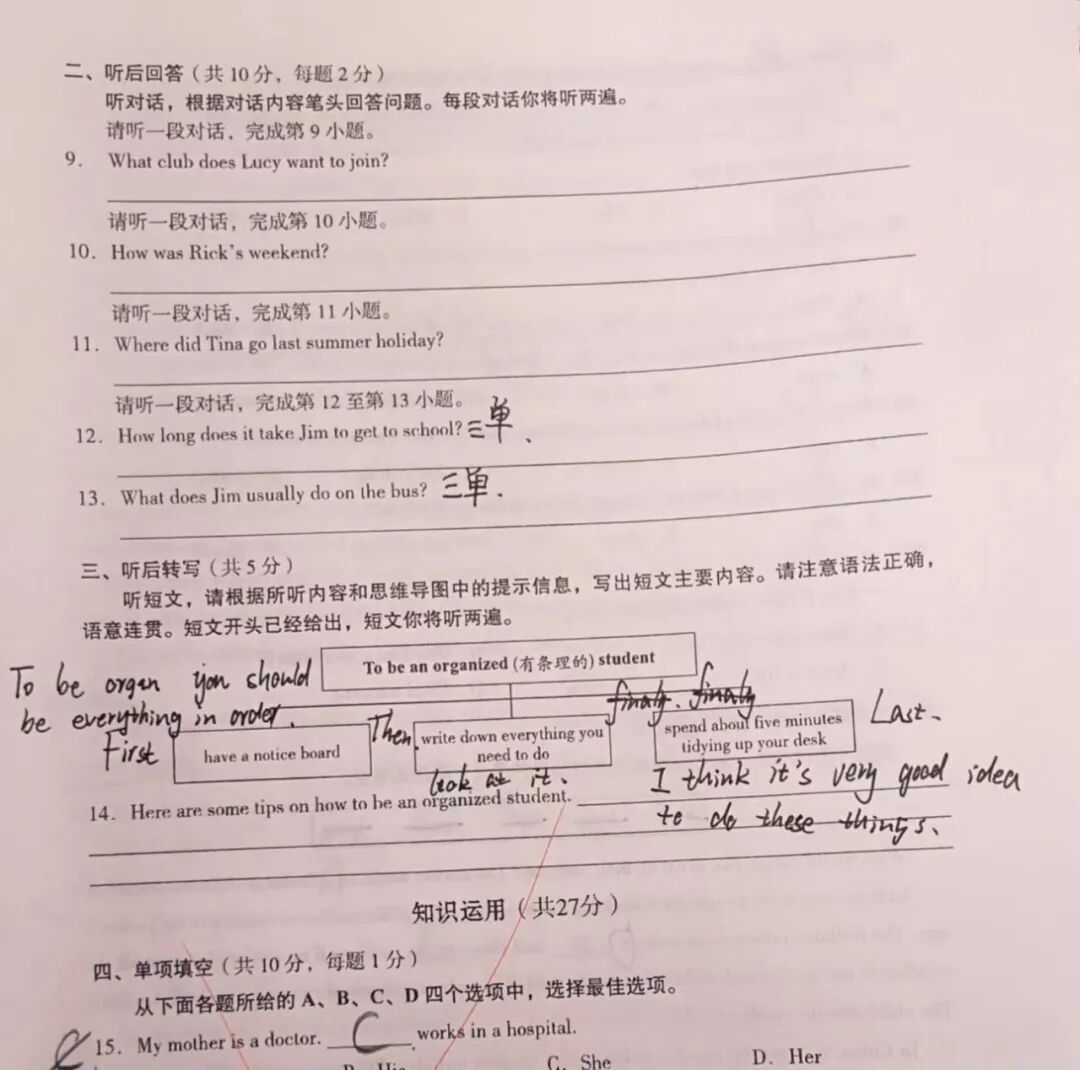 二、听后回答（共 10 分，每题 2 分）
听对话，根据对话内容笔头回答问题。每段对话你将听两遍。
请听一段对话，完成第 9 小题。
9. What club does Lucy want to join?
请听一段对话，完成第 10 小题。
10. How was Rick's weekend?
请听一段对话，完成第 11 小题。
11. Where did Tina go last summer holiday?
请听一段对话，完成第 12 至第 13 小题。
12. How long does it take Jim to get to school? 三单、
13. What does Jim usually do on the bus? 三单.
三、听后转写（共 5 分）
听短文，请根据所听内容和思维导图中的提示信息，写出短文主要内容。请注意语法正确，
语意连贯。短文开头已经给出，短文你将听两遍。
To be an organized (有条理的) student
To be organ you should
be everything in order.
finaly. finaly
First
have a notice board
Then.
write down everything you
need to do
look at it.
spend about five minutes
tidying up your desk
Last.
14. Here are some tips on how to be an organized student.
I think it's very good idea
to do these things.
知识运用（共27分）
四、单项填空（共 10 分，每题 1 分）
从下面各题所给的 A、B、C、D 四个选项中，选择最佳选项。
15. My mother is a doctor. C works in a hospital.
B. His
C. She
D. Her